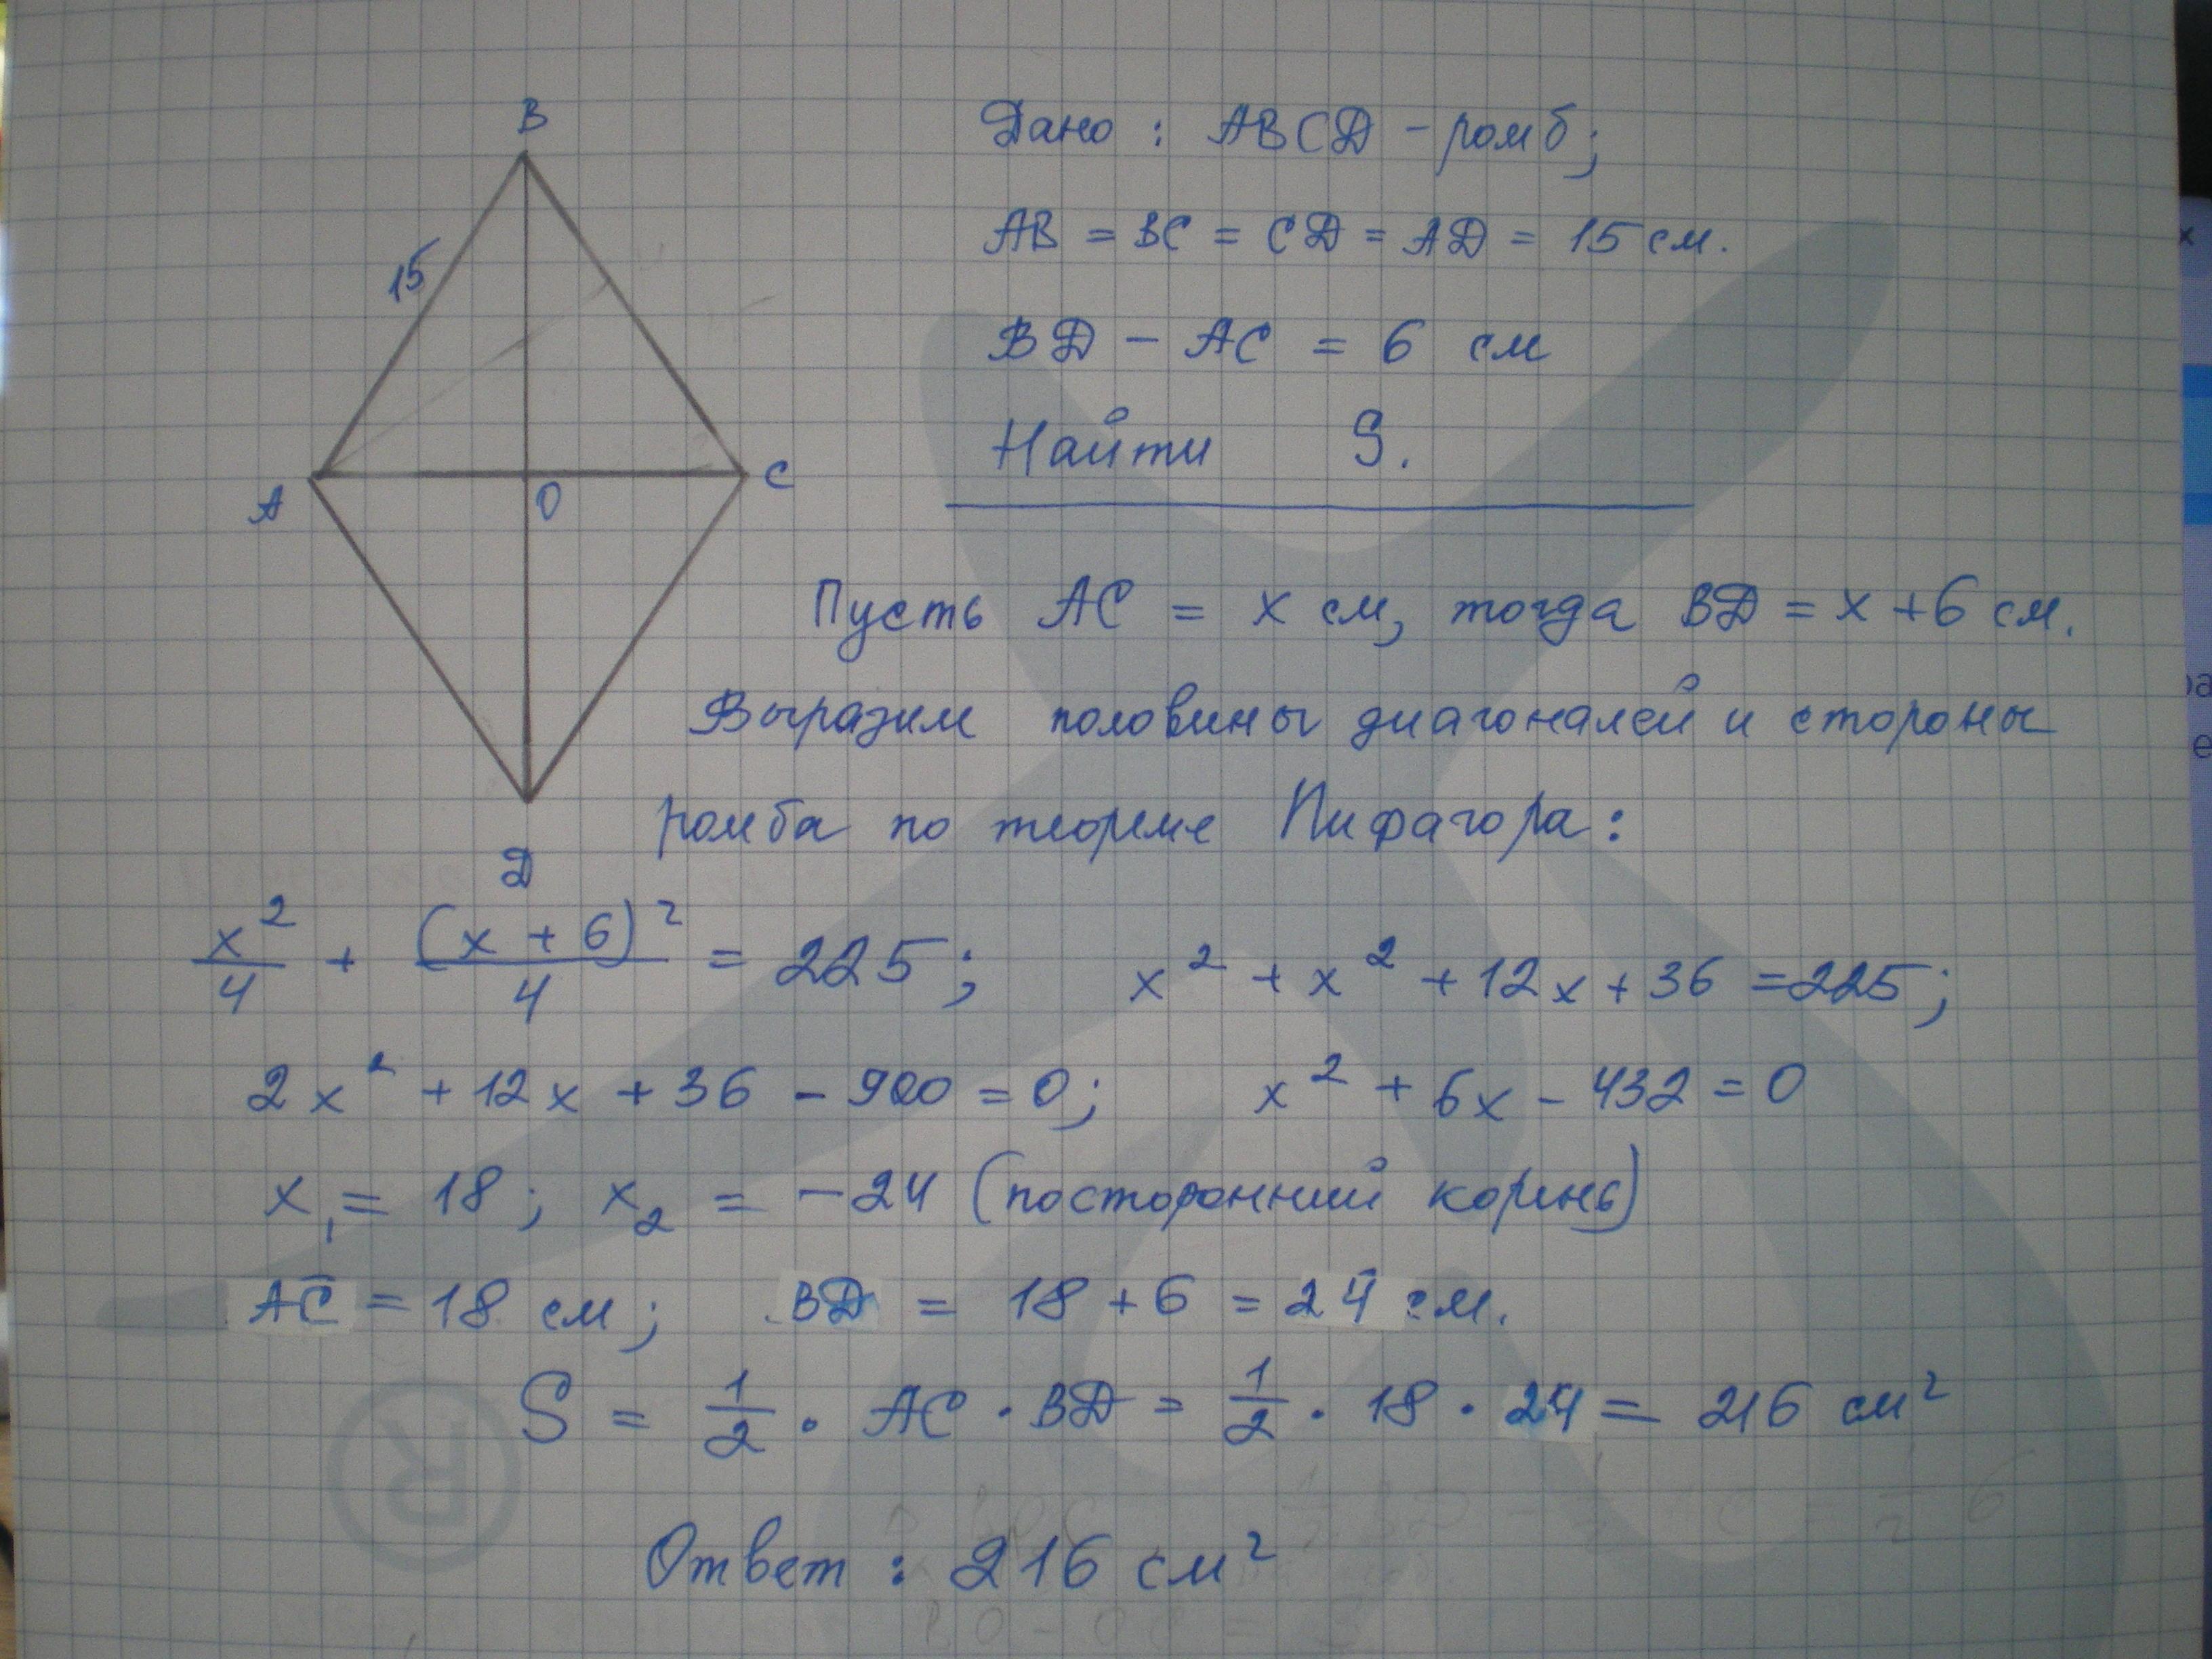 B
15
A
O
C
D
Дано : ABCD - ромб;
AB = BC = CD = AD = 15 см.
BD - AC = 6 см
Найти S.
Пусть AC = x см, тогда BD = x + 6 см.
Выразим половины диагоналей и стороны
ромба по теореме Пифагора:
x²/4 + (x + 6)²/4 = 225; x² + x² + 12x + 36 = 225;
2x² + 12x + 36 - 900 = 0; x² + 6x - 432 = 0
x₁ = 18; x₂ = -24 (посторонний корень)
AC = 18 см; BD = 18 + 6 = 24 см.
S = 1/2 · AC · BD = 1/2 · 18 · 24 = 216 см²
Ответ : 216 см²